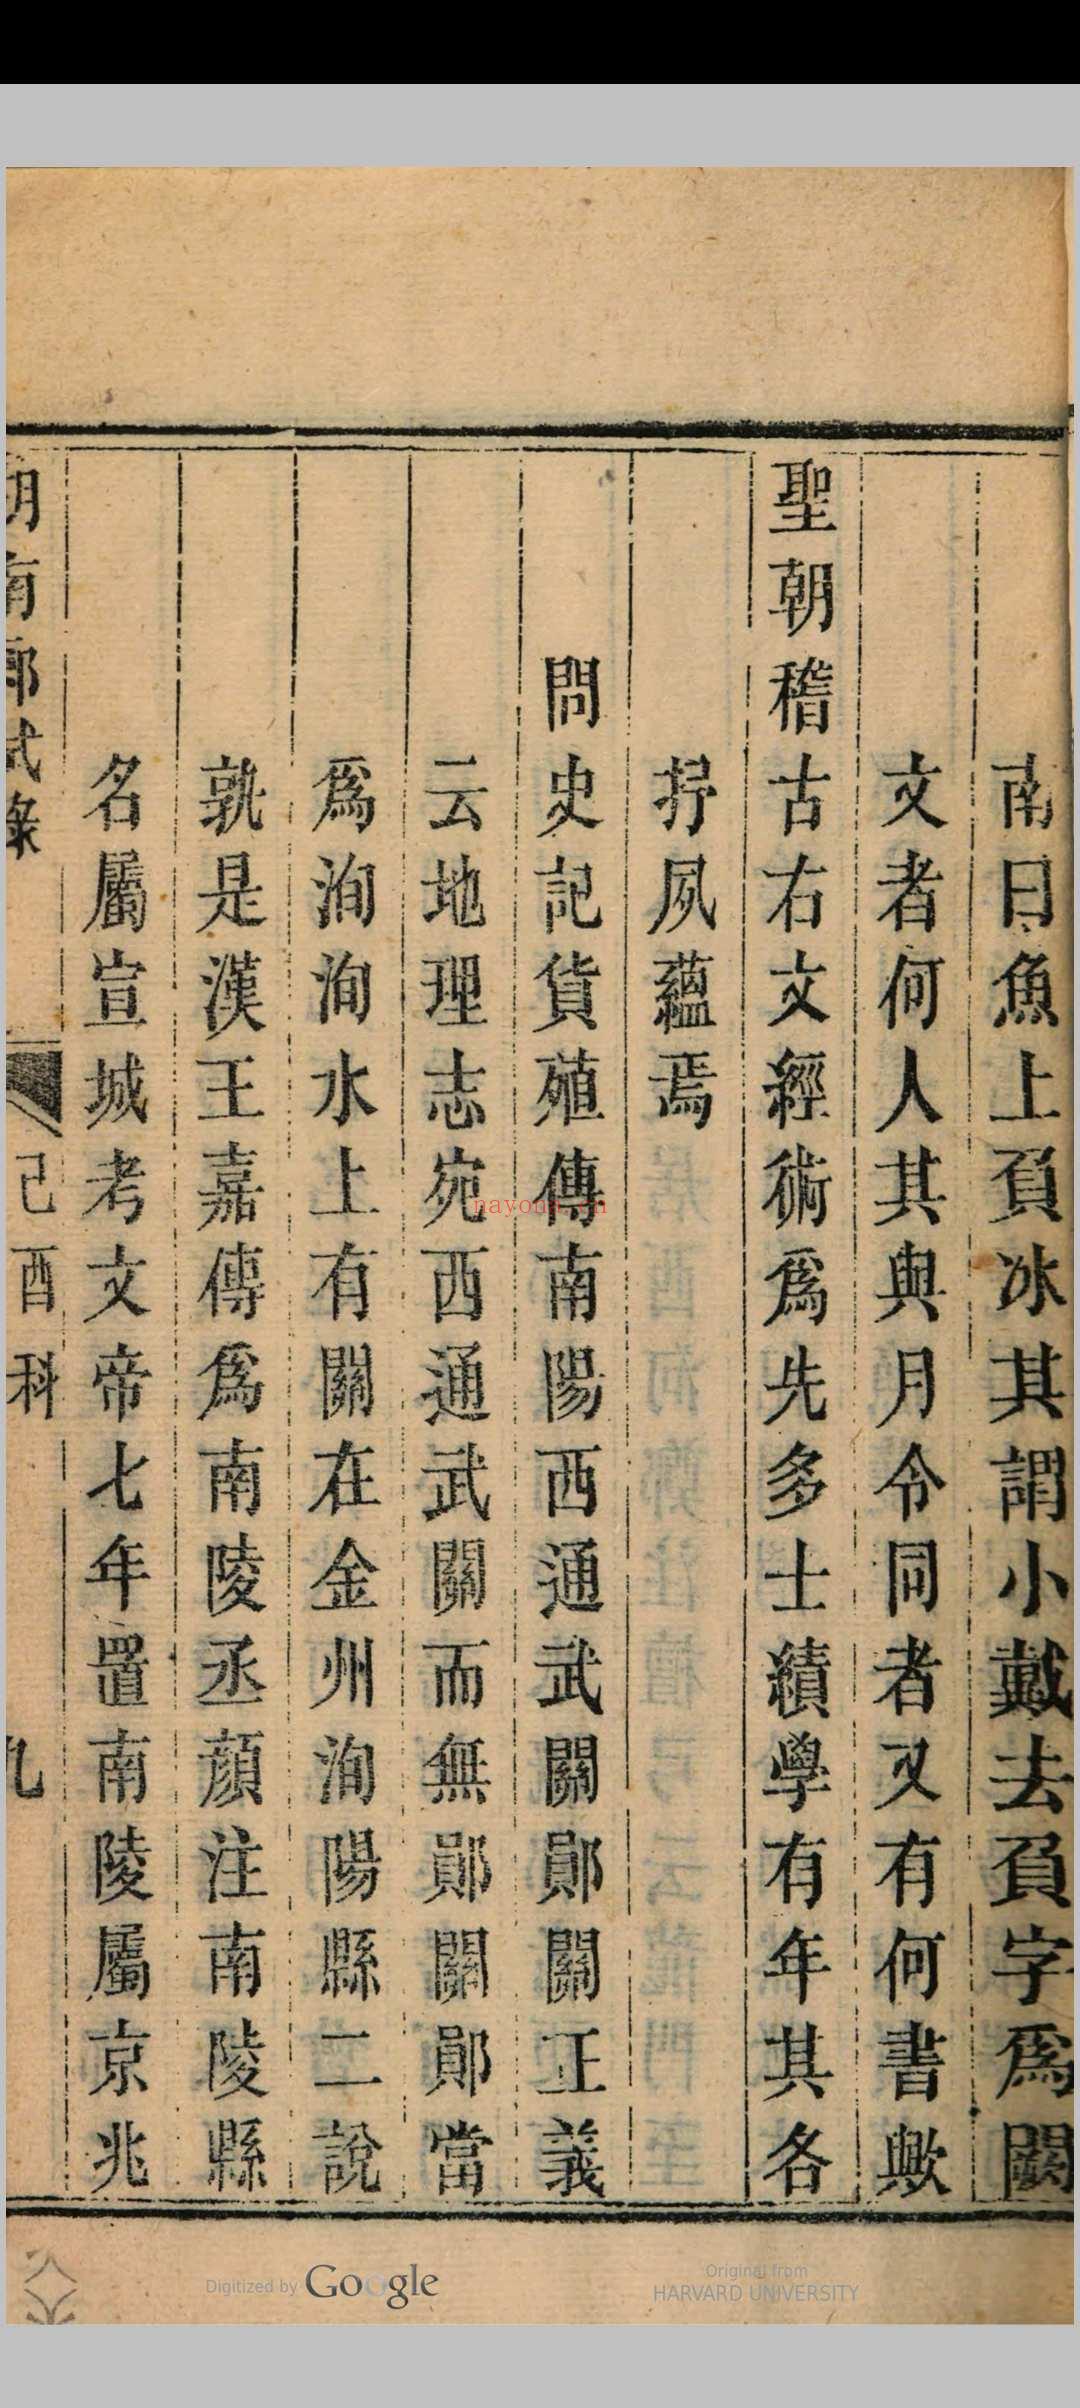 南曰魚上負冰其謂小戴去負字爲闕
文者何人其與月令同者又有何書歟
聖朝稽古右文經術爲先多士績學有年其各
抒夙蘊焉
問史記貨殖傳南陽西通武關鄖關正義
云地理志宛西通武關而無鄖關鄖當
爲洵洵水上有關在金州洵陽縣二說
孰是漢王嘉傳爲南陵丞顔注南陵縣
名屬宣城考文帝七年置南陵屬京兆
湖南鄉試錄
己酉科
九
nayona.cn
Digitized by Google
Original from
HARVARD UNIVERSITY